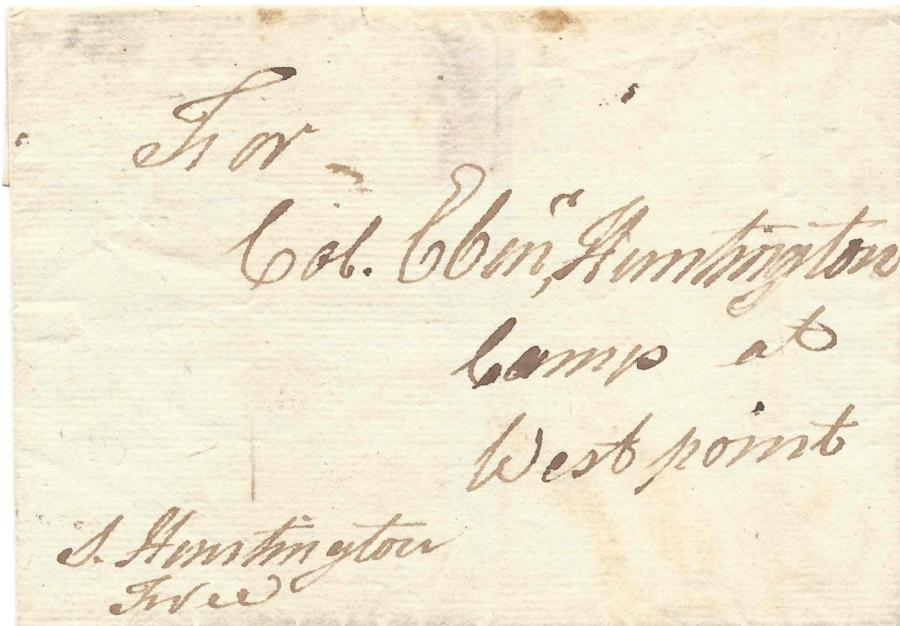 For
Col. Ebenr, Huntington
Camp at
West point
S. Huntington
Free